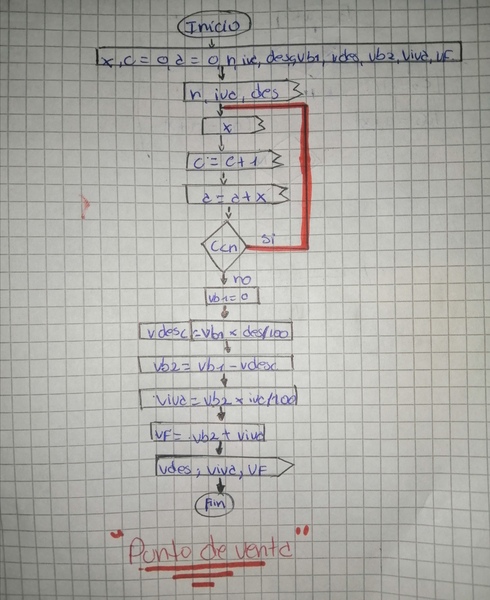 Inicio
x, c = 0, a = 0, n, iva, desc, vb1, vdes, vb2, viva, VF
n, iva, des
x
c = c + 1
a = a + x
c<n
si
no
vb1 = 0
vdesc = vb1 × des/100
vb2 = vb1 - vdesc
viva = vb2 × iva/100
VF = vb2 + viva
vdes, viva, VF
Fin
"Punto de venta"